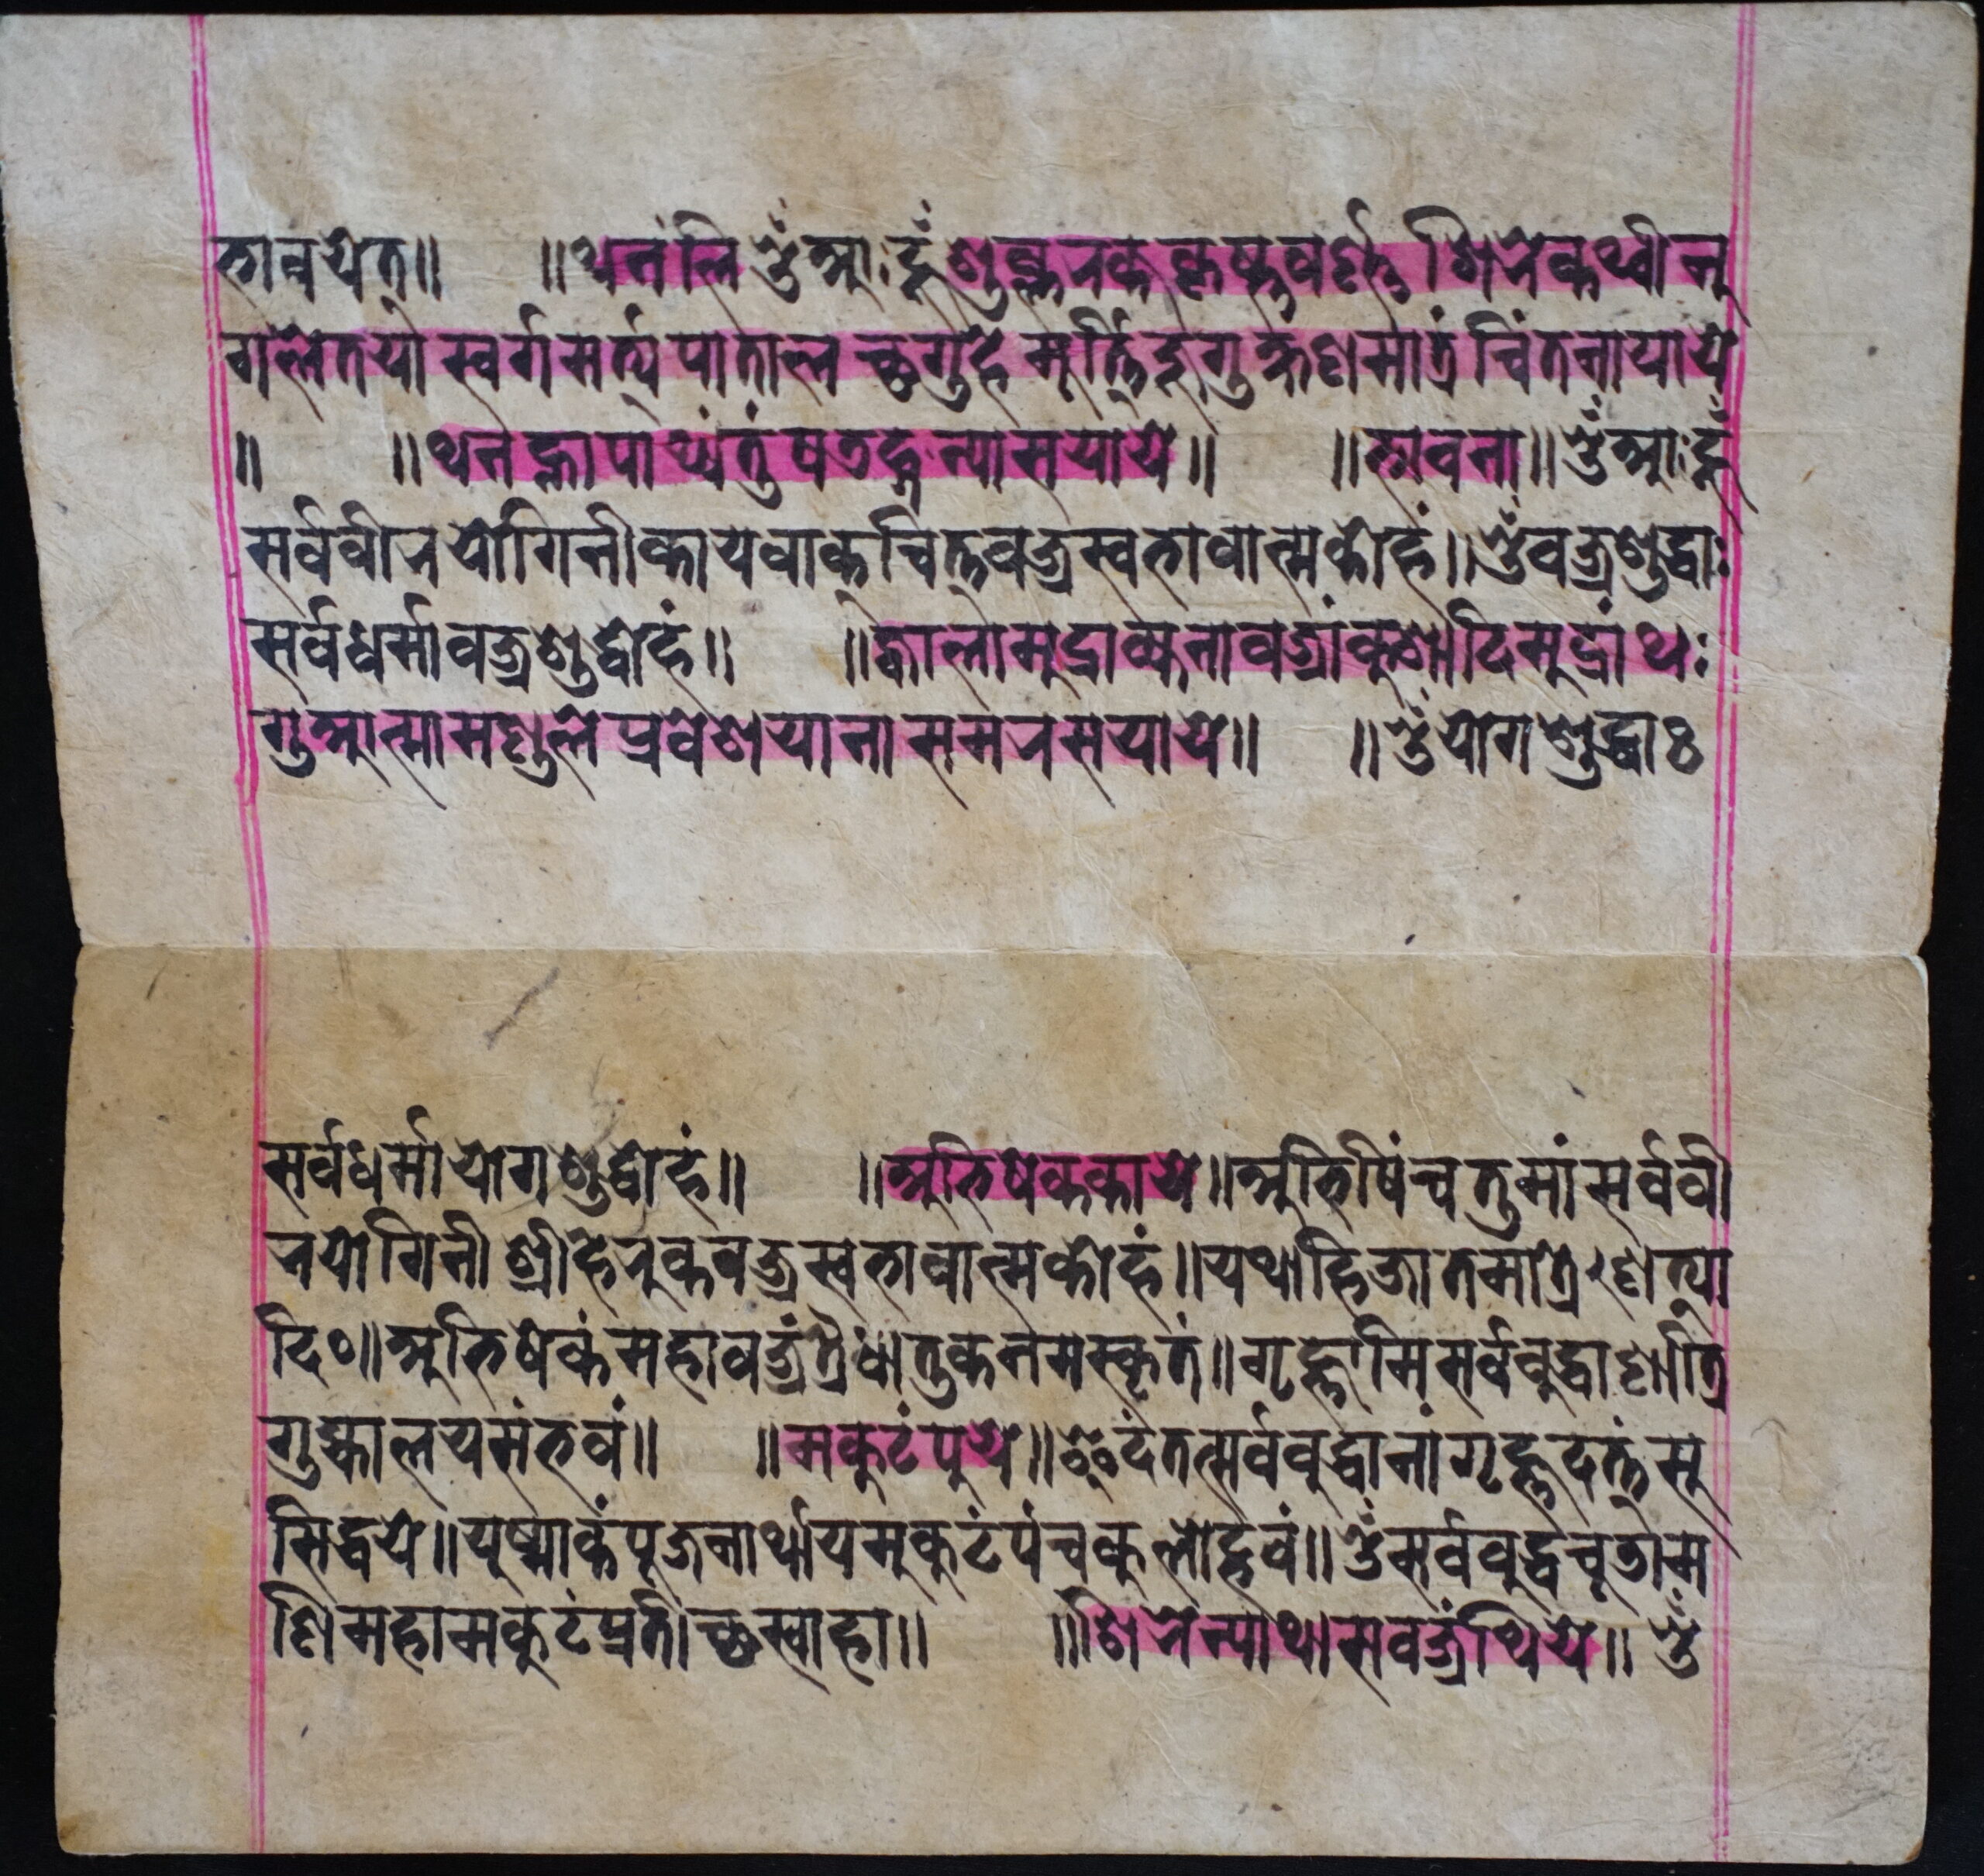 भावयेत्॥ ॥थनंलि ॐआःहूं शुक्लरक्तकृष्णवर्ण्ण शिरेकथ्वीन्
गलेतयाे स्वर्गमर्त्य पाताल च्छगुहे मूर्त्ति जुगु क्षंणमात्रं चिंतनायाये
॥ ॥थन ह्लापाथ्यंतुं षतङ्ग न्यासयाये॥ ॥भावना॥ ॐआःहूं
सर्ववीरयोगिनीकायवाक्चित्तवज्रस्वभावात्मकोहं॥ ॐवज्रशुद्धाः
सर्वधर्मावज्रशुद्धोहं॥ ॥ज्वालामुद्राक्यनावज्रांकुशादिमुद्रां थः
गु आत्मामण्डले प्रवेशयाना समरसयाये॥ ॥ॐयोगशुद्धाः
सर्वधर्मायोगशुद्धोहं॥ ॥अभिषेककाये॥ अभिषिंचतुमांसर्ववी
रयोगिनीश्रीहेरुकवज्रस्वभावात्मकोहं॥ यथाहिजातमात्रेणत्या
दि०॥ अभिषेकंमहावज्रंत्रैधातुकनमस्कृतं॥ गृह्णामिसर्वबुद्धाणांत्रि
गुह्यालयसंभवं॥ ॥मकुटंपुये॥ इदंतत्सर्वबुद्धानांगृह्णदत्तंसु
सिद्धये॥ युष्माकंपूजनार्थायमुकुटंपंचकुलोद्भवं॥ ॐसर्वबुद्धचूडाम
णिमहामकुटंप्रतीच्छस्वाहा॥ ॥शिरेन्याथासवज्रंथिये॥ ॐ